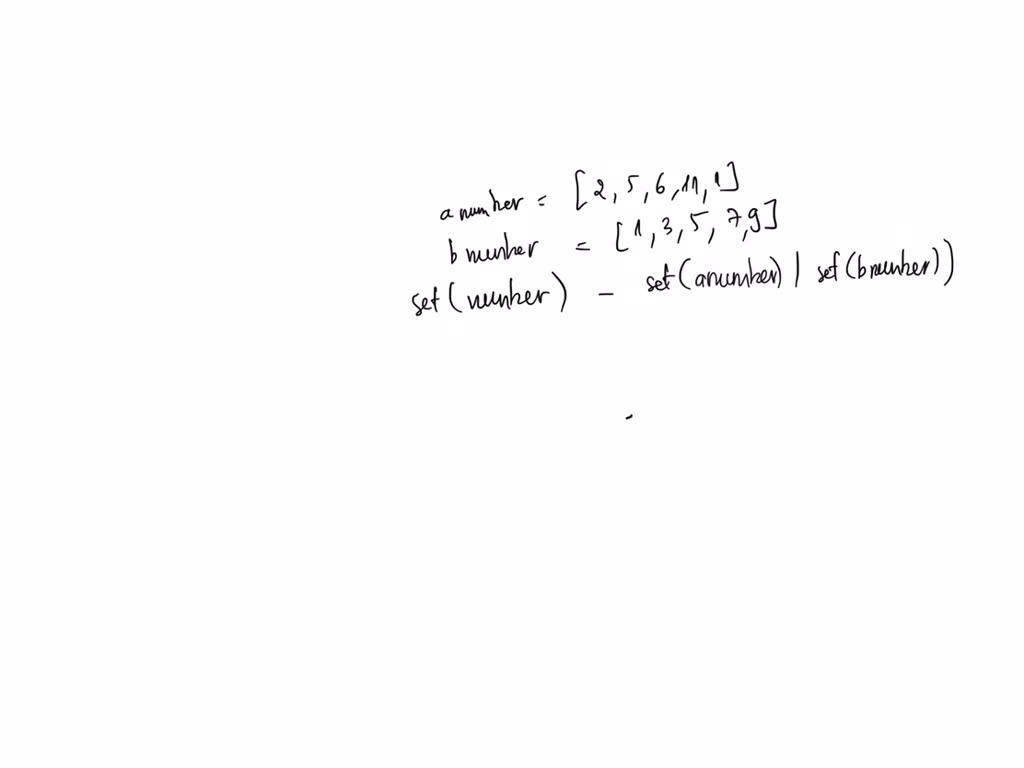 anumber = [2, 5, 6, 11, 1]
bnumber = [1, 3, 5, 7, 9]
set(number) - set(anumber) | set(bnumber))